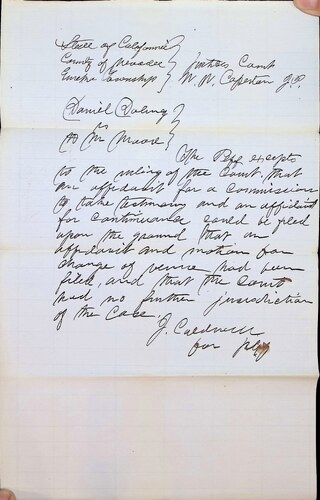 State of California }
County of Nevada } Justices Court
Eureka Township } W. W. Caperton J.P.
Daniel Doling }
vs }
Wm Mood }
The Plff excepts
to the ruling of the Court, that
an affidavit for a commission
to take testimony and an affidavit
for continuance could be filed
upon the ground that an
affidavit and motion for
change of venue had been
filed, and that the Court
had no further jurisdiction
of the Case.
J. Caldwell
for plff